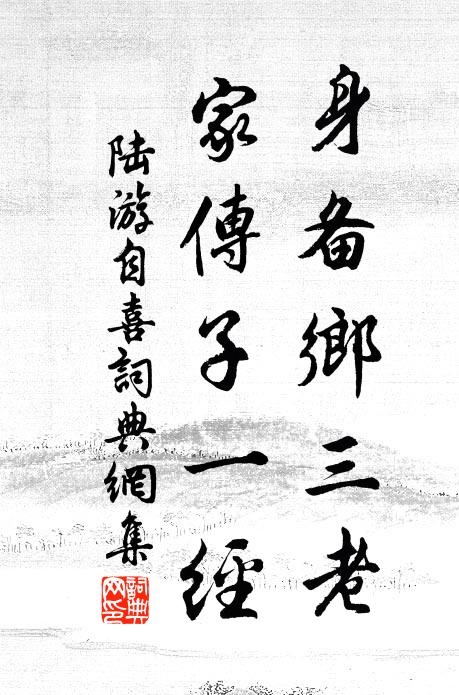 身备鄉三老
家傳子一經
陆游自喜詞典網集
詞典网印